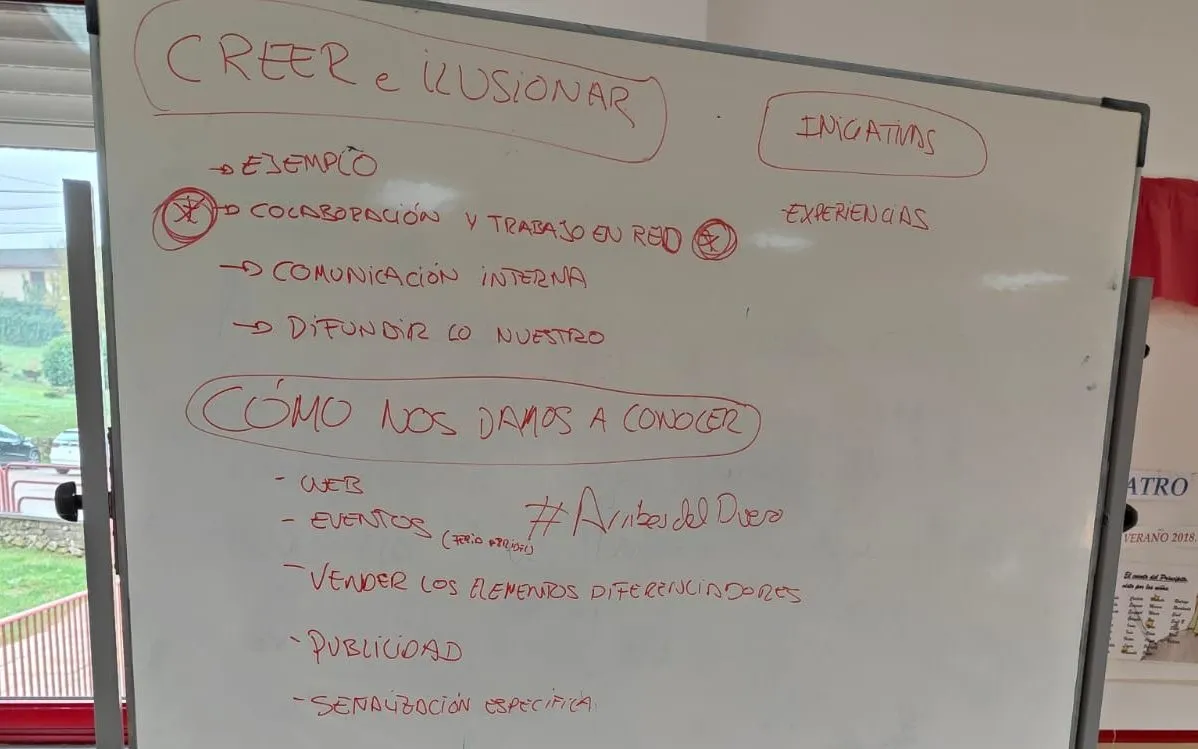 CREER e iLUSiONAR
→ EJEMPLO
→ COLABORACIÓN Y TRABAJO EN RED
→ COMUNICACIÓN INTERNA
→ DIFUNDIR LO NUESTRO
INICIATIVAS
-EXPERIENCIAS
CÓMO NOS DAMOS A CONOCER
- WEB
- EVENTOS
#ArribesdelDuero
- VENDER LOS ELEMENTOS DIFERENCIADORES
- PUBLICIDAD
- SEÑALIZACIÓN ESPECÍFICA
ATRO
VERANO 2018.
El cuento del Principito